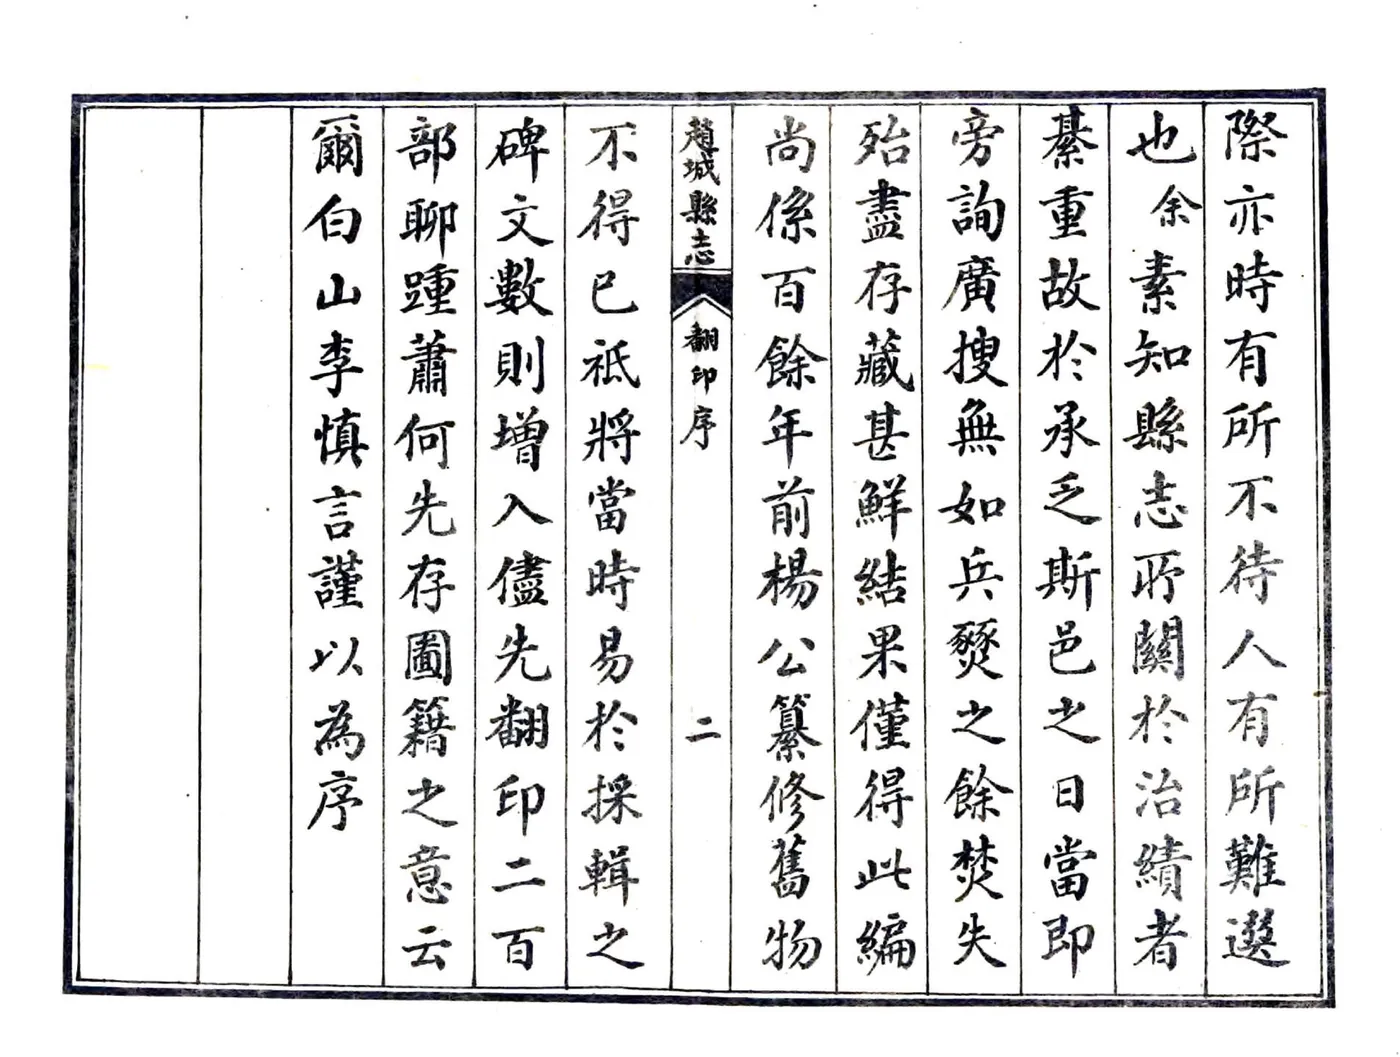 際亦時有所不待人有所難選
也余素知縣志所關於治績者
綦重故於承乏斯邑之日當即
旁詢廣搜無如兵燹之餘焚失
殆盡存藏甚鮮結果僅得此編
尚係百餘年前楊公纂修舊物
趙城縣志
翻印序
二
不得已祇將當時易於採輯之
碑文數則增入儘先翻印二百
部聊踵蕭何先存圖籍之意云
爾白山李慎言謹以為序